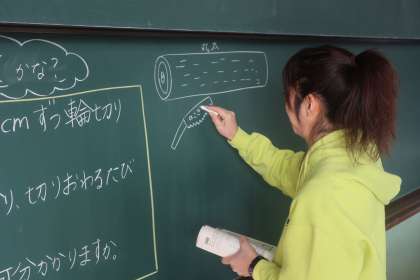 かな?
cmずつ輪切り
り、切りおわるたび
分かかりますか。